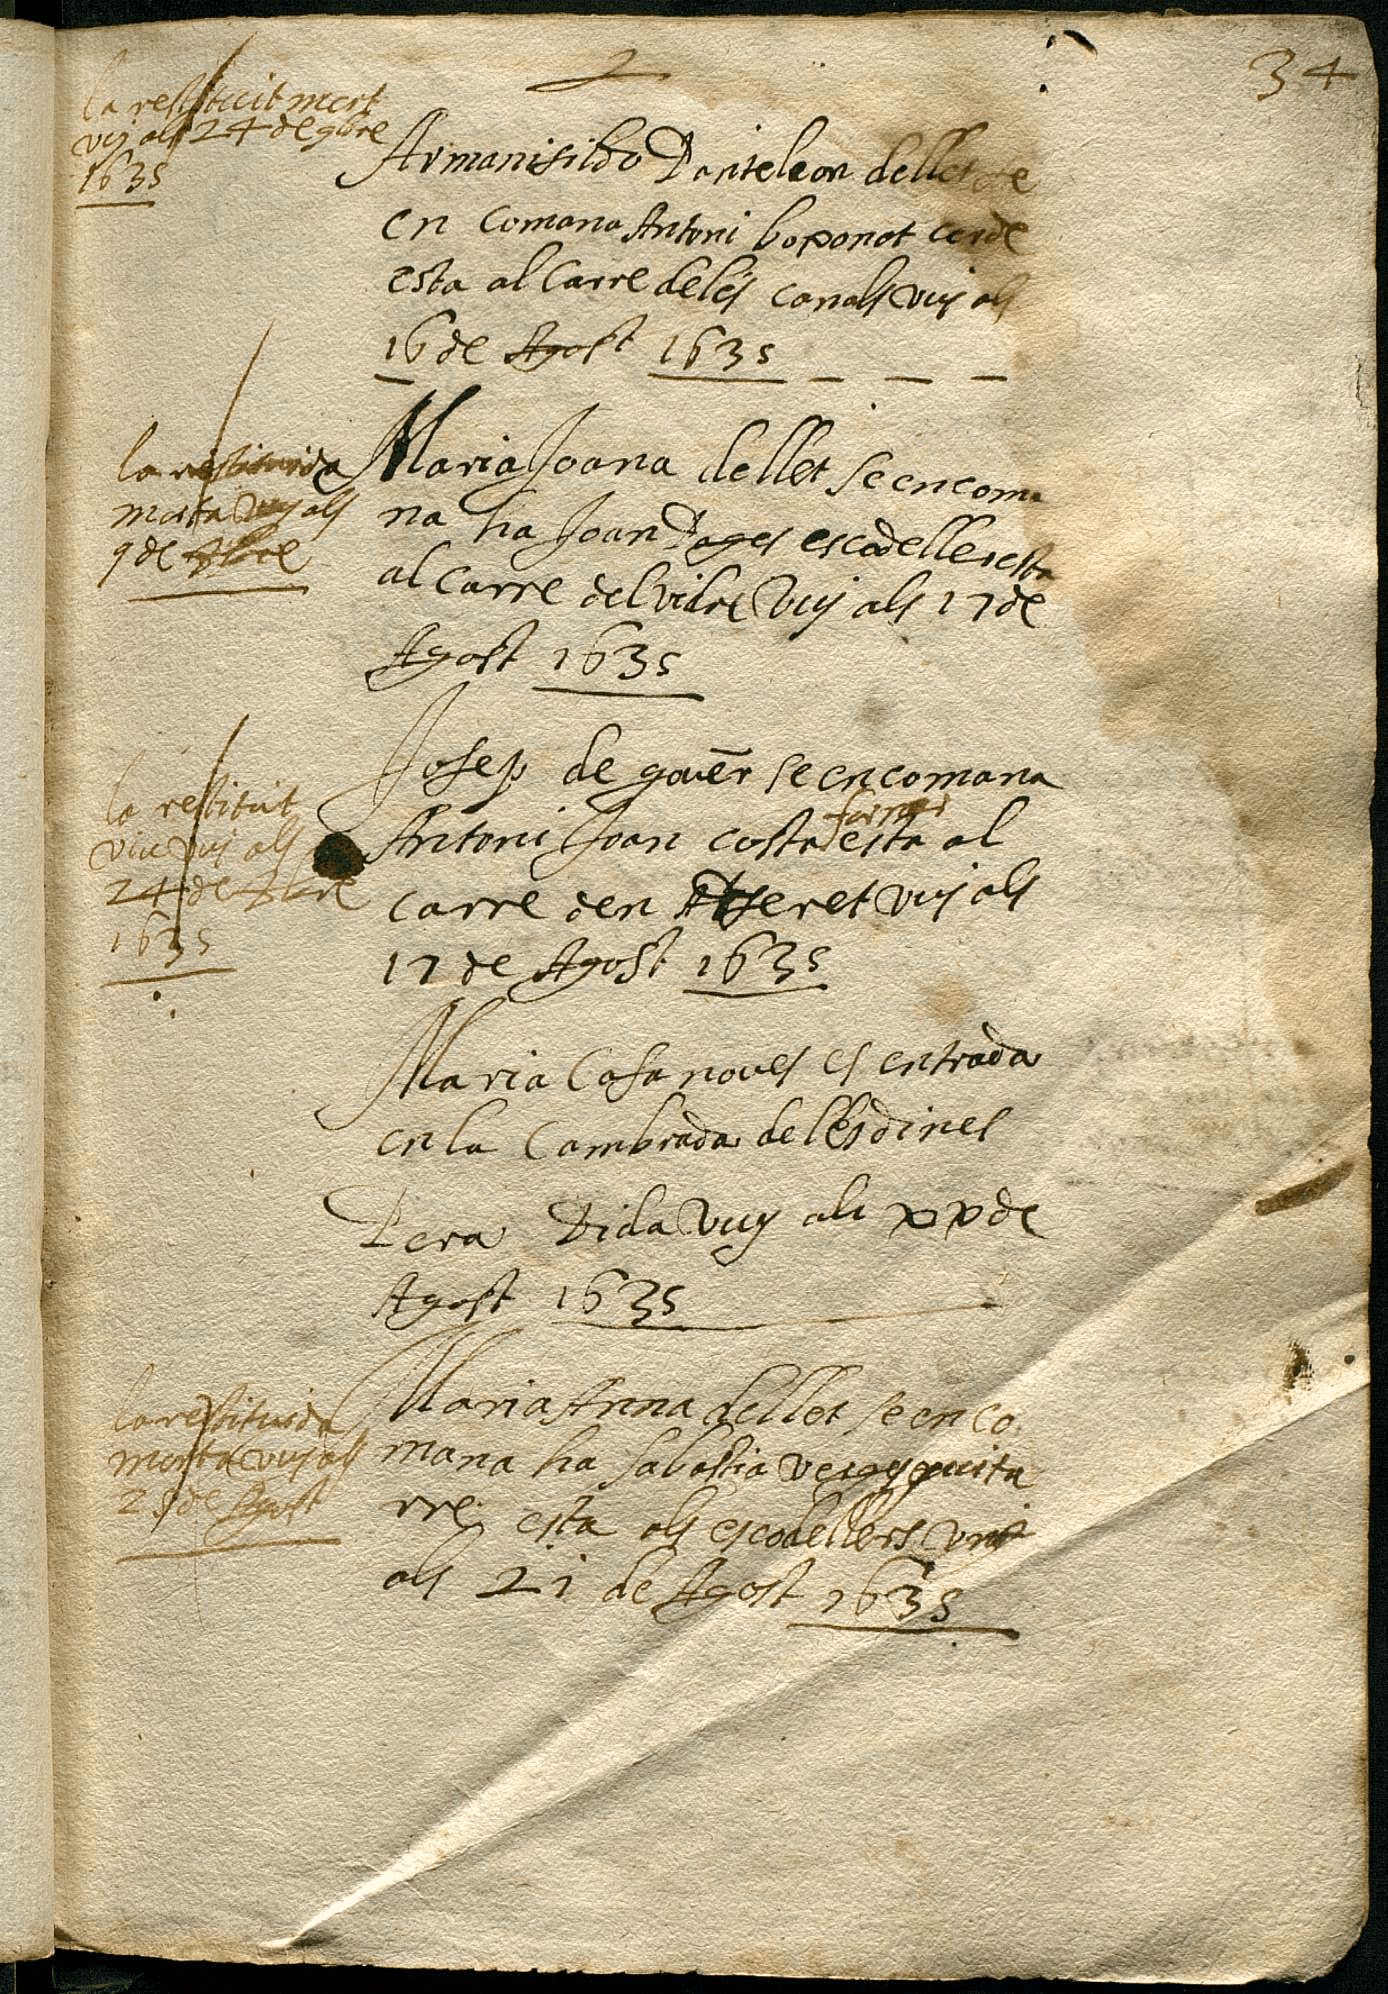 34
la restituit mort
vuy als 24 de 9bre
1635
Armanisildo Panteleon de llet se
en comana Antoni boponot
esta al Carre de les canals vuy als
16 de Agost 1635
la restituida
morta vuy als
9 de
Maria Joana de llet se encoma
na ha Joan Pages escodeller esta
al carre del vidre Vuy als 17 de
Agost 1635
la restituit
viu vuy als
24 de
1635
Josep de gouer se encomana
Antoni Joan costa forner esta al
carre den vuy als
17 de Agost 1635
Maria Casanoues es entrada
en la Cambrada de les dines
Pera Dida Vuy als xx de
Agost 1635
la restituida
morta vuy als
29 de Agost
Maria Anna de llet se enco
mana ha Sabastia quita
rre esta als escodellers vuy
als 21 de Agost 1635